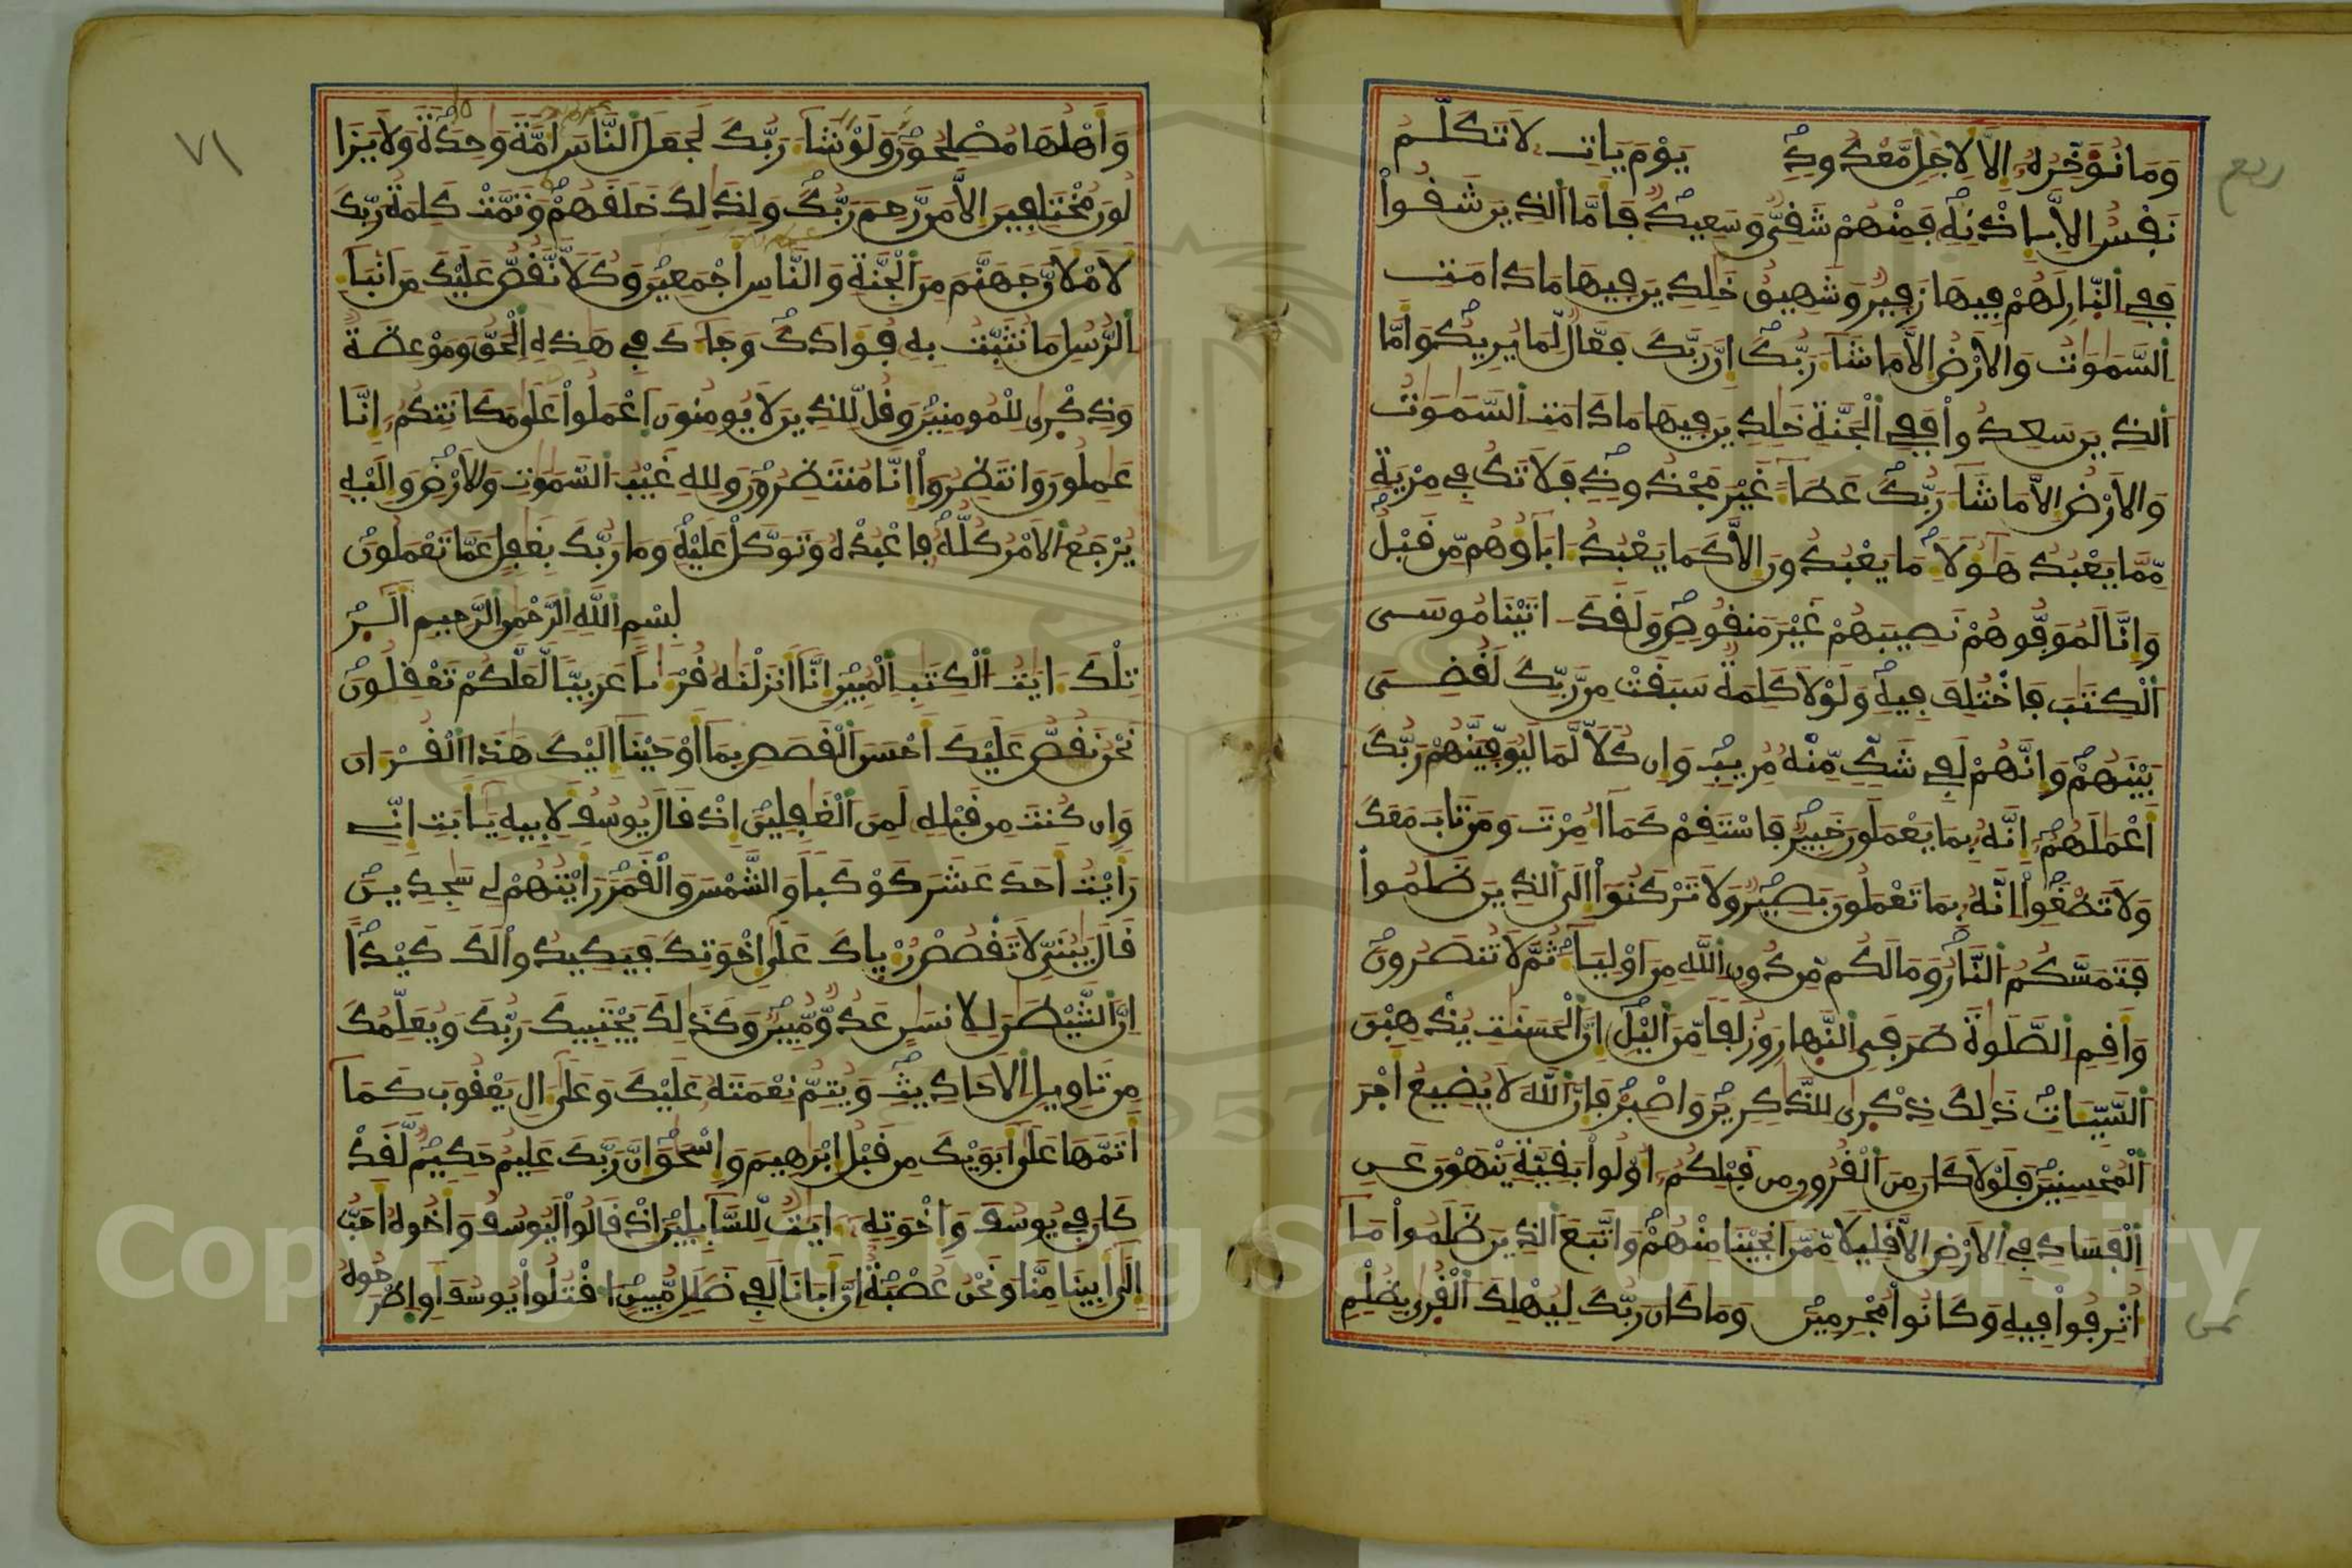 وَمَا نُؤَخِّرُهُ إِلَّا لِأَجَلٖ مَّعْدُودٖ يَوْمَ يَاتِۦ لَا تَكَلَّمُ
نَفْسٌ إِلَّا بِإِذْنِهِۦ فَمِنْهُمْ شَقِيٌّ وَسَعِيدٌ فَأَمَّا ٱلذِينَ شَقُواْ
فَفِے ٱلنّ۪ارِ لَهُمْ فِيهَا زَفِيرٌ وَشَهِيقٌ خَٰلِدِينَ فِيهَا مَا دَامَتِ
ٱلسَّمَٰوَٰتُ وَالَارْضُ إِلَّا مَا شَآءَ رَبُّكَ إِنَّ رَبَّكَ فَعَّالٌ لِّمَا يُرِيدُ وَأَمَّا
ٱلذِينَ سَعِدُواْ فَفِے ٱلْجَنَّةِ خَٰلِدِينَ فِيهَا مَا دَامَتِ ٱلسَّمَٰوَٰتُ
وَالَارْضُ إِلَّا مَا شَآءَ رَبُّكَ عَطَآءً غَيْرَ مَجْذُوذٖ فَلَا تَكُ فِے مِرْيَةٖ
مِّمَّا يَعْبُدُ هَٰٓؤُلَآءِ مَا يَعْبُدُونَ إِلَّا كَمَا يَعْبُدُ ءَابَآؤُهُم مِّن قَبْلُ
وَإِنَّا لَمُوَفُّوهُمْ نَصِيبَهُمْ غَيْرَ مَنقُوصٖ وَلَقَدَ اٰتَيْنَا مُوسَى
ٱلْكِتَٰبَ فَاخْتُلِفَ فِيهِ وَلَوْلَا كَلِمَةٌ سَبَقَتْ مِن رَّبِّكَ لَقُضِيَ
بَيْنَهُمْ وَإِنَّهُمْ لَفِے شَكّٖ مِّنْهُ مُرِيبٖ وَإِن كُلّاً لَّمَا لَيُوَفِّيَنَّهُمْ رَبُّكَ
أَعْمَٰلَهُمُۥٓ إِنَّهُۥ بِمَا يَعْمَلُونَ خَبِيرٌ فَاسْتَقِمْ كَمَآ أُمِرْتَ وَمَن تَابَ مَعَكَ
وَلَا تَطْغَوِاْ اِنَّهُۥ بِمَا تَعْمَلُونَ بَصِيرٌ وَلَا تَرْكَنُوٓاْ إِلَى ٱلذِينَ ظَلَمُواْ
فَتَمَسَّكُمُ ٱلنَّارُ وَمَا لَكُم مِّن دُونِ ٱللَّهِ مِنَ اَوْلِيَآءَ ثُمَّ لَا تُنصَرُونَ
وَأَقِمِ ٱلصَّلَوٰةَ طَرَفَيِ ٱلنَّهَارِ وَزُلَفاً مِّنَ ٱليْلِ إِنَّ ٱلْحَسَنَٰتِ يُذْهِبْنَ
ٱلسَّيِّـَٔاتِ ذَٰلِكَ ذِكْرَىٰ لِلذَّٰكِرِينَ وَاصْبِرْ فَإِنَّ ٱللَّهَ لَا يُضِيعُ أَجْرَ
ٱلْمُحْسِنِينَ فَلَوْلَا كَانَ مِنَ ٱلْقُرُونِ مِن قَبْلِكُمُۥٓ أُوْلُواْ بَقِيَّةٖ يَنْهَوْنَ عَنِ
ٱلْفَسَادِ فِے ٱلَارْضِ إِلَّا قَلِيلاً مِّمَّنَ اَنجَيْنَا مِنْهُمْ وَاتَّبَعَ ٱلذِينَ ظَلَمُواْ مَآ
أُتْرِفُواْ فِيهِ وَكَانُواْ مُجْرِمِينَ وَمَا كَانَ رَبُّكَ لِيُهْلِكَ ٱلْقُرَىٰ بِظُلْمٖ
ربع
ثمن
٧١
وَأَهْلُهَا مُصْلِحُونَ وَلَوْ شَآءَ رَبُّكَ لَجَعَلَ ٱلنَّاسَ أُمَّةً وَٰحِدَةً وَلَا يَزَا
لُونَ مُخْتَلِفِينَ إِلَّا مَن رَّحِمَ رَبُّكَ وَلِذَٰلِكَ خَلَقَهُمْ وَتَمَّتْ كَلِمَةُ رَبِّكَ
لَأَمْلَأَنَّ جَهَنَّمَ مِنَ ٱلْجِنَّةِ وَالنَّاسِ أَجْمَعِينَ وَكُلّاً نَّقُصُّ عَلَيْكَ مِنَ اَنۢبَآءِ
ٱلرُّسُلِ مَا نُثَبِّتُ بِهِۦ فُؤَادَكَ وَجَآءَكَ فِے هَٰذِهِ ٱلْحَقُّ وَمَوْعِظَةٌ
وَذِكْرَىٰ لِلْمُومِنِينَ وَقُل لِّلذِينَ لَا يُومِنُونَ اَعْمَلُواْ عَلَىٰ مَكَانَتِكُمُۥٓ إِنَّا
عَٰمِلُونَ وَانتَظِرُوٓاْ إِنَّا مُنتَظِرُونَ وَلِلهِ غَيْبُ ٱلسَّمَٰوَٰتِ وَالَارْضِ وَإِلَيْهِ
يُرْجَعُ ٱلَامْرُ كُلُّهُۥ فَاعْبُدْهُ وَتَوَكَّلْ عَلَيْهِ وَمَا رَبُّكَ بِغَٰفِلٍ عَمَّا تَعْمَلُونَ
بِسْمِ ٱللَّهِ ٱلرَّحْمَٰنِ ٱلرَّحِيمِ أَلَٓرۚ
تِلْكَ ءَايَٰتُ ٱلْكِتَٰبِ ٱلْمُبِينِ إِنَّآ أَنزَلْنَٰهُ قُرْءَٰناً عَرَبِيّاً لَّعَلَّكُمْ تَعْقِلُونَ
نَحْنُ نَقُصُّ عَلَيْكَ أَحْسَنَ ٱلْقَصَصِ بِمَآ أَوْحَيْنَآ إِلَيْكَ هَٰذَا ٱلْقُرْءَانَ
وَإِن كُنتَ مِن قَبْلِهِۦ لَمِنَ ٱلْغَٰفِلِينَ إِذْ قَالَ يُوسُفُ لِأَبِيهِ يَٰٓأَبَتِ إِنِّے
رَأَيْتُ أَحَدَ عَشَرَ كَوْكَباً وَالشَّمْسَ وَالْقَمَرَ رَأَيْتُهُمْ لِے سَٰجِدِينَ
قَالَ يَٰبُنَيِّ لَا تَقْصُصْ رُءْيٜاكَ عَلَىٰٓ إِخْوَتِكَ فَيَكِيدُواْ لَكَ كَيْداً
اِنَّ ٱلشَّيْطَٰنَ لِلِانسَٰنِ عَدُوٌّ مُّبِينٌ وَكَذَٰلِكَ يَجْتَبِيكَ رَبُّكَ وَيُعَلِّمُكَ
مِن تَاوِيلِ ٱلَاحَادِيثِ وَيُتِمُّ نِعْمَتَهُۥ عَلَيْكَ وَعَلَىٰٓ ءَالِ يَعْقُوبَ كَمَآ
أَتَمَّهَا عَلَىٰٓ أَبَوَيْكَ مِن قَبْلُ إِبْرَٰهِيمَ وَإِسْحَٰقَ إِنَّ رَبَّكَ عَلِيمٌ حَكِيمٌ لَّقَدْ
كَانَ فِے يُوسُفَ وَإِخْوَتِهِۦٓ ءَايَٰتٌ لِّلسَّآئِلِينَ إِذْ قَالُواْ لَيُوسُفُ وَأَخُوهُ أَحَبُّ
إِلَىٰٓ أَبِينَا مِنَّا وَنَحْنُ عُصْبَةٌ اِنَّ أَبَانَا لَفِے ضَلَٰلٖ مُّبِينٍ اِ۟قْتُلُواْ يُوسُفَ أَوِ اِطْرَحُوهُ
Copyright © King Saud University
1957